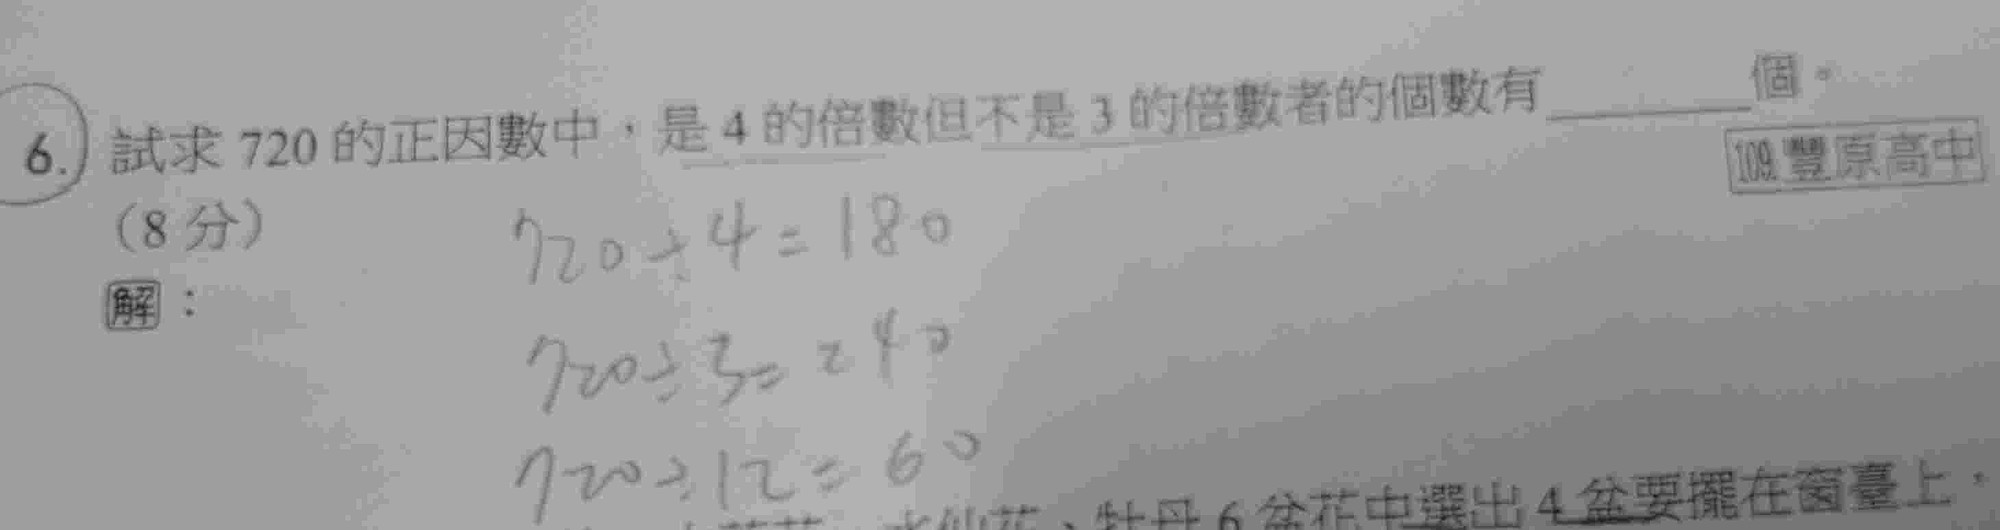 6. 試求 720 的正因數中，是 4 的倍數但不是 3 的倍數者的個數有＿＿＿＿個。
109.豐原高中
（8 分）
解：
720÷4=180
720÷3=240
720÷12=60
牡丹 6 盆花中選出 4 盆要擺在窗臺上，